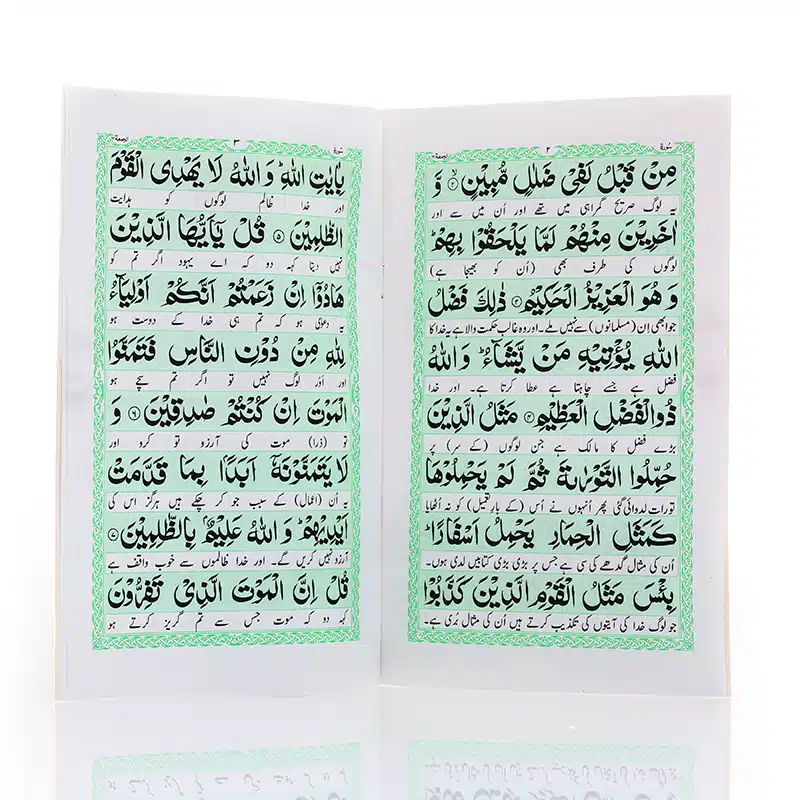 سورة ٢ الجمعة
مِنْ قَبْلُ لَفِيْ ضَلٰلٍ مُّبِيْنٍ ۙ﴿۲﴾ وَّ
یہ لوگ صریح گمراہی میں تھے اور اُن میں سے اور
اٰخَرِيْنَ مِنْهُمْ لَمَّا يَلْحَقُوْا بِهِمْ ؕ
لوگوں کی طرف بھی (اُن کو بھیجا ہے)
وَ هُوَ الْعَزِيْزُ الْحَكِيْمُ ﴿۳﴾ ذٰلِكَ فَضْلُ
جو ابھی اِن (مسلمانوں) سے نہیں ملے۔ اور وہ غالب حکمت والا ہے یہ خدا کا
اللّٰهِ يُؤْتِيْهِ مَنْ يَّشَآءُ ؕ وَاللّٰهُ
فضل ہے جسے چاہتا ہے عطا کرتا ہے۔ اور خدا
ذُوالْفَضْلِ الْعَظِيْمِ ﴿۴﴾ مَثَلُ الَّذِيْنَ
بڑے فضل کا مالک ہے جن لوگوں (کے سر) پر
حُمِّلُوا التَّوْرٰىةَ ثُمَّ لَمْ يَحْمِلُوْهَا
تورات لدوائی گئی پھر اُنہوں نے اُس (کے بارِ تعمیل) کو نہ اُٹھایا
كَمَثَلِ الْحِمَارِ يَحْمِلُ اَسْفَارًا ؕ
اُن کی مثال گدھے کی سی ہے جس پر بڑی بڑی کتابیں لدی ہوں۔
بِئْسَ مَثَلُ الْقَوْمِ الَّذِيْنَ كَذَّبُوْا
جو لوگ خدا کی آیتوں کی تکذیب کرتے ہیں اُن کی مثال بُری ہے۔
سورة ٣ الجمعة
بِاٰيٰتِ اللّٰهِ ؕ وَ اللّٰهُ لَا يَهْدِى الْقَوْمَ
اور خدا ظالم لوگوں کو ہدایت
الظّٰلِمِيْنَ ﴿۵﴾ قُلْ يٰۤاَيُّهَا الَّذِيْنَ
نہیں دیتا کہہ دو کہ اے یہود اگر تم کو
هَادُوْۤا اِنْ زَعَمْتُمْ اَنَّكُمْ اَوْلِيَآءُ
یہ دعویٰ ہو کہ تم ہی خدا کے دوست ہو
لِلّٰهِ مِنْ دُوْنِ النَّاسِ فَتَمَنَّوُا
اور اَور لوگ نہیں تو اگر تم سچے ہو
الْمَوْتَ اِنْ كُنْتُمْ صٰدِقِيْنَ ﴿۶﴾ وَ
تو (ذرا) موت کی آرزو تو کرو اور
لَا يَتَمَنَّوْنَهٗۤ اَبَدًۢا بِمَا قَدَّمَتْ
یہ اُن (اعمال) کے سبب جو کر چکے ہیں ہرگز اس کی
اَيْدِيْهِمْ ؕ وَ اللّٰهُ عَلِيْمٌۢ بِالظّٰلِمِيْنَ ﴿۷﴾
آرزو نہیں کریں گے۔ اور خدا ظالموں سے خوب واقف ہے
قُلْ اِنَّ الْمَوْتَ الَّذِيْ تَفِرُّوْنَ
کہہ دو کہ موت جس سے تم گریز کرتے ہو